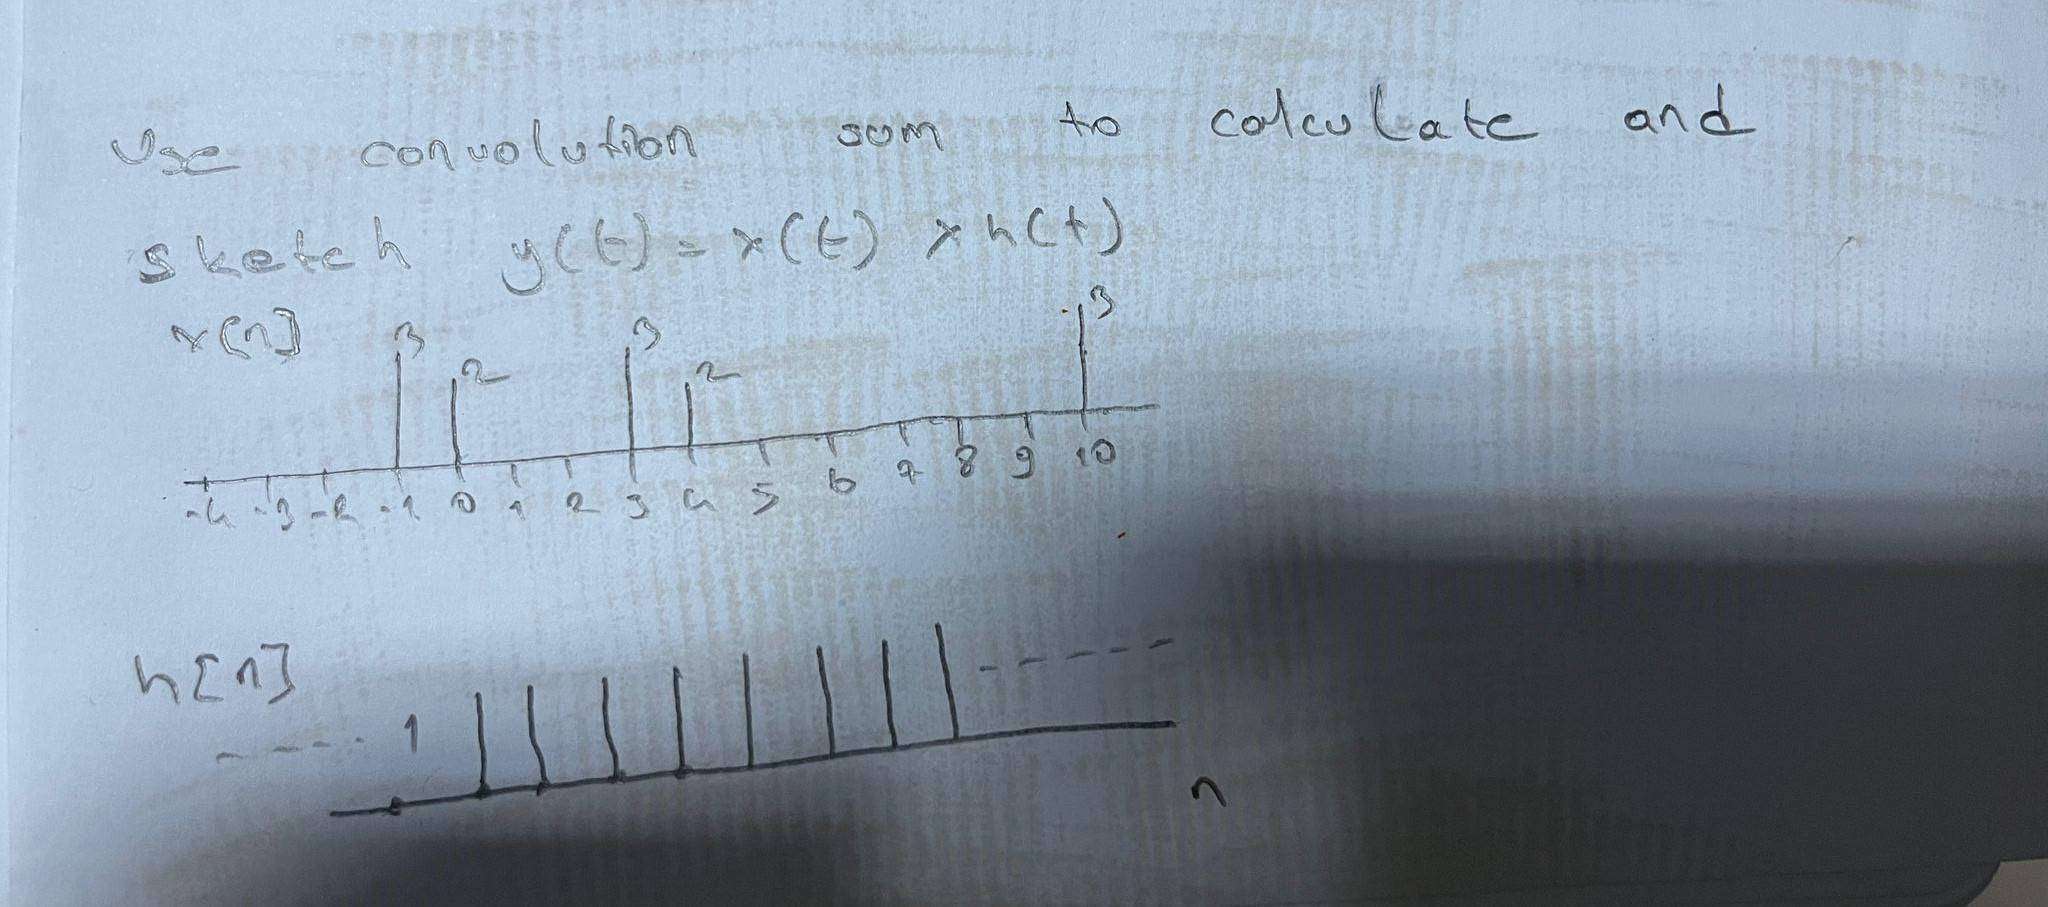 Use convolution sum to calculate and
sketch y(t) = x(t) * h(t)
x[n]
3 2 3 2 3
-4 -3 -2 -1 0 1 2 3 4 5 6 7 8 9 10
h[n]
---- 1 -----
n